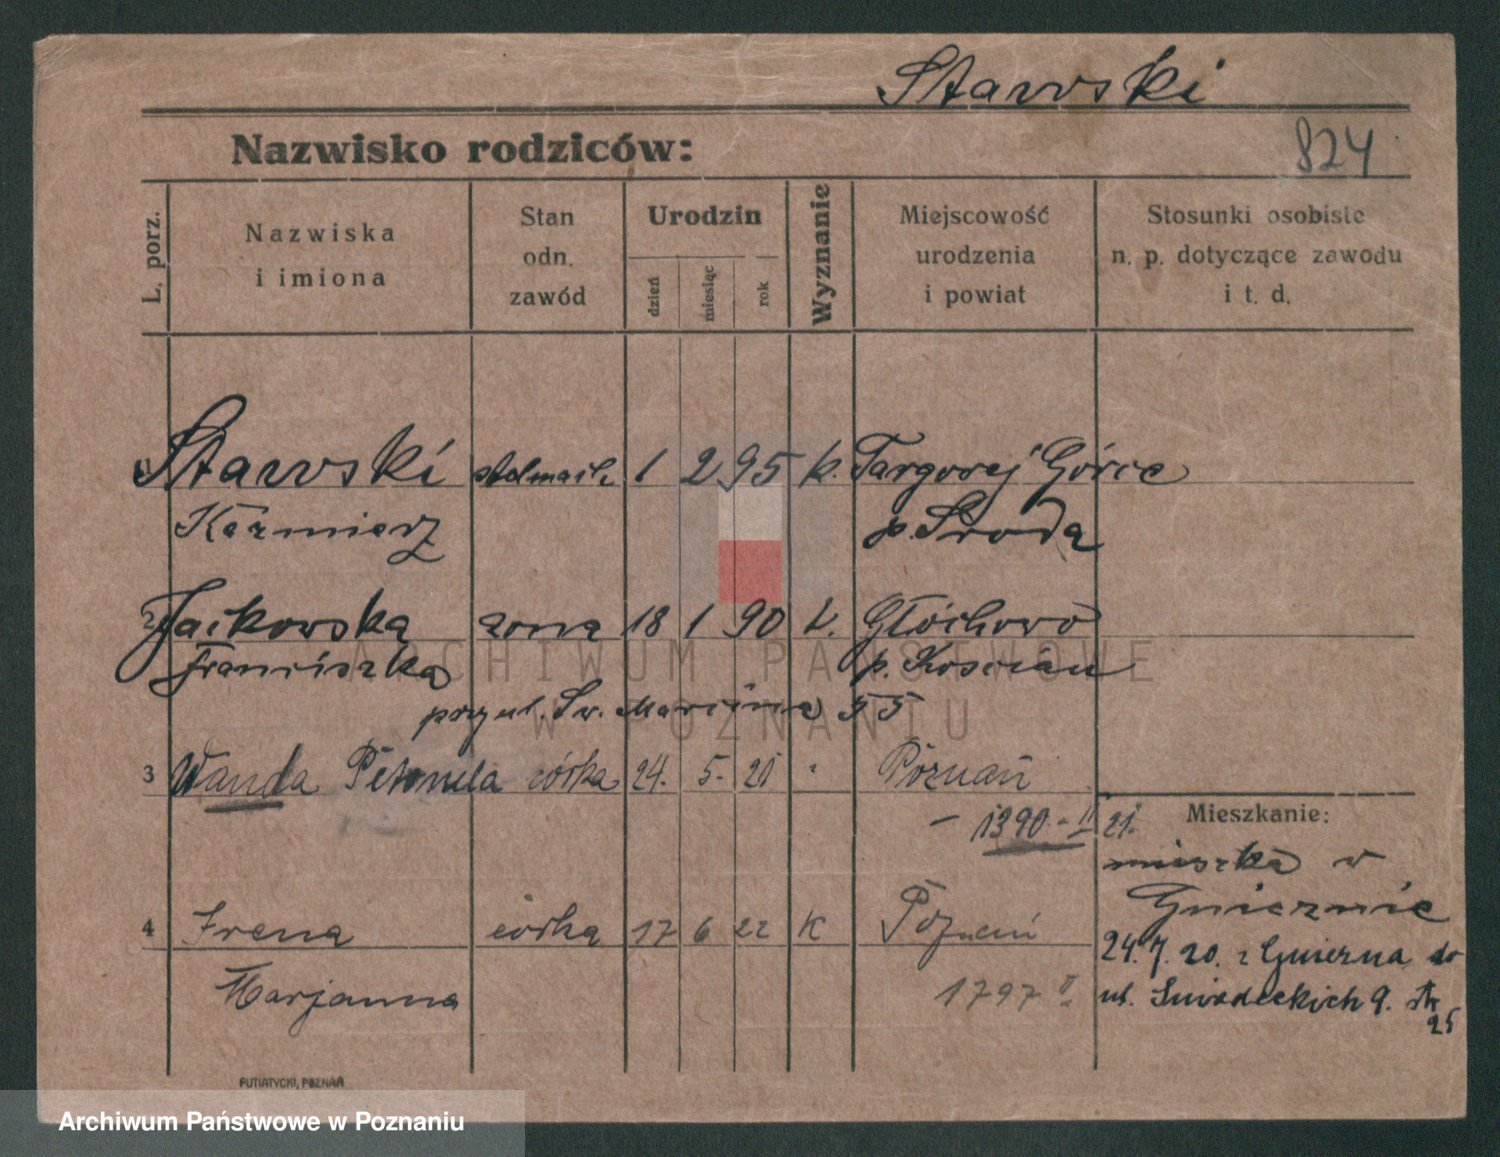 Stawski
824
Nazwisko rodziców:
L. porz.
Nazwiska
i imiona
Stan
odn.
zawód
Urodzin
dzień
miesiąc
rok
Wyznanie
Miejscowość
urodzenia
i powiat
Stosunki osobiste
n. p. dotyczące zawodu
i t. d.
1 Stawski stelmach 1 2 95 k. Targowej Górce
Kazmierz p. Środa
2 Jackowska żona 18 1 90 k. Głóchowo
Franciszka p. Kościan
przy ul. Św. Marcina 55
3 Wanda Petronela córka 24. 5. 21 " Poznań
Mieszkanie:
— 1390 - II 21.
mieszka w
Gnieznie
4 Irena córka 17 6 22 K Poznań
24. 7. 20. z Gniezna do
Marjanna 1797 II
ul. Śniadeckich 9. str
25
PUTIATYCKI, POZNAŃ
ARCHIWUM PAŃSTWOWE
W POZNANIU
Archiwum Państwowe w Poznaniu